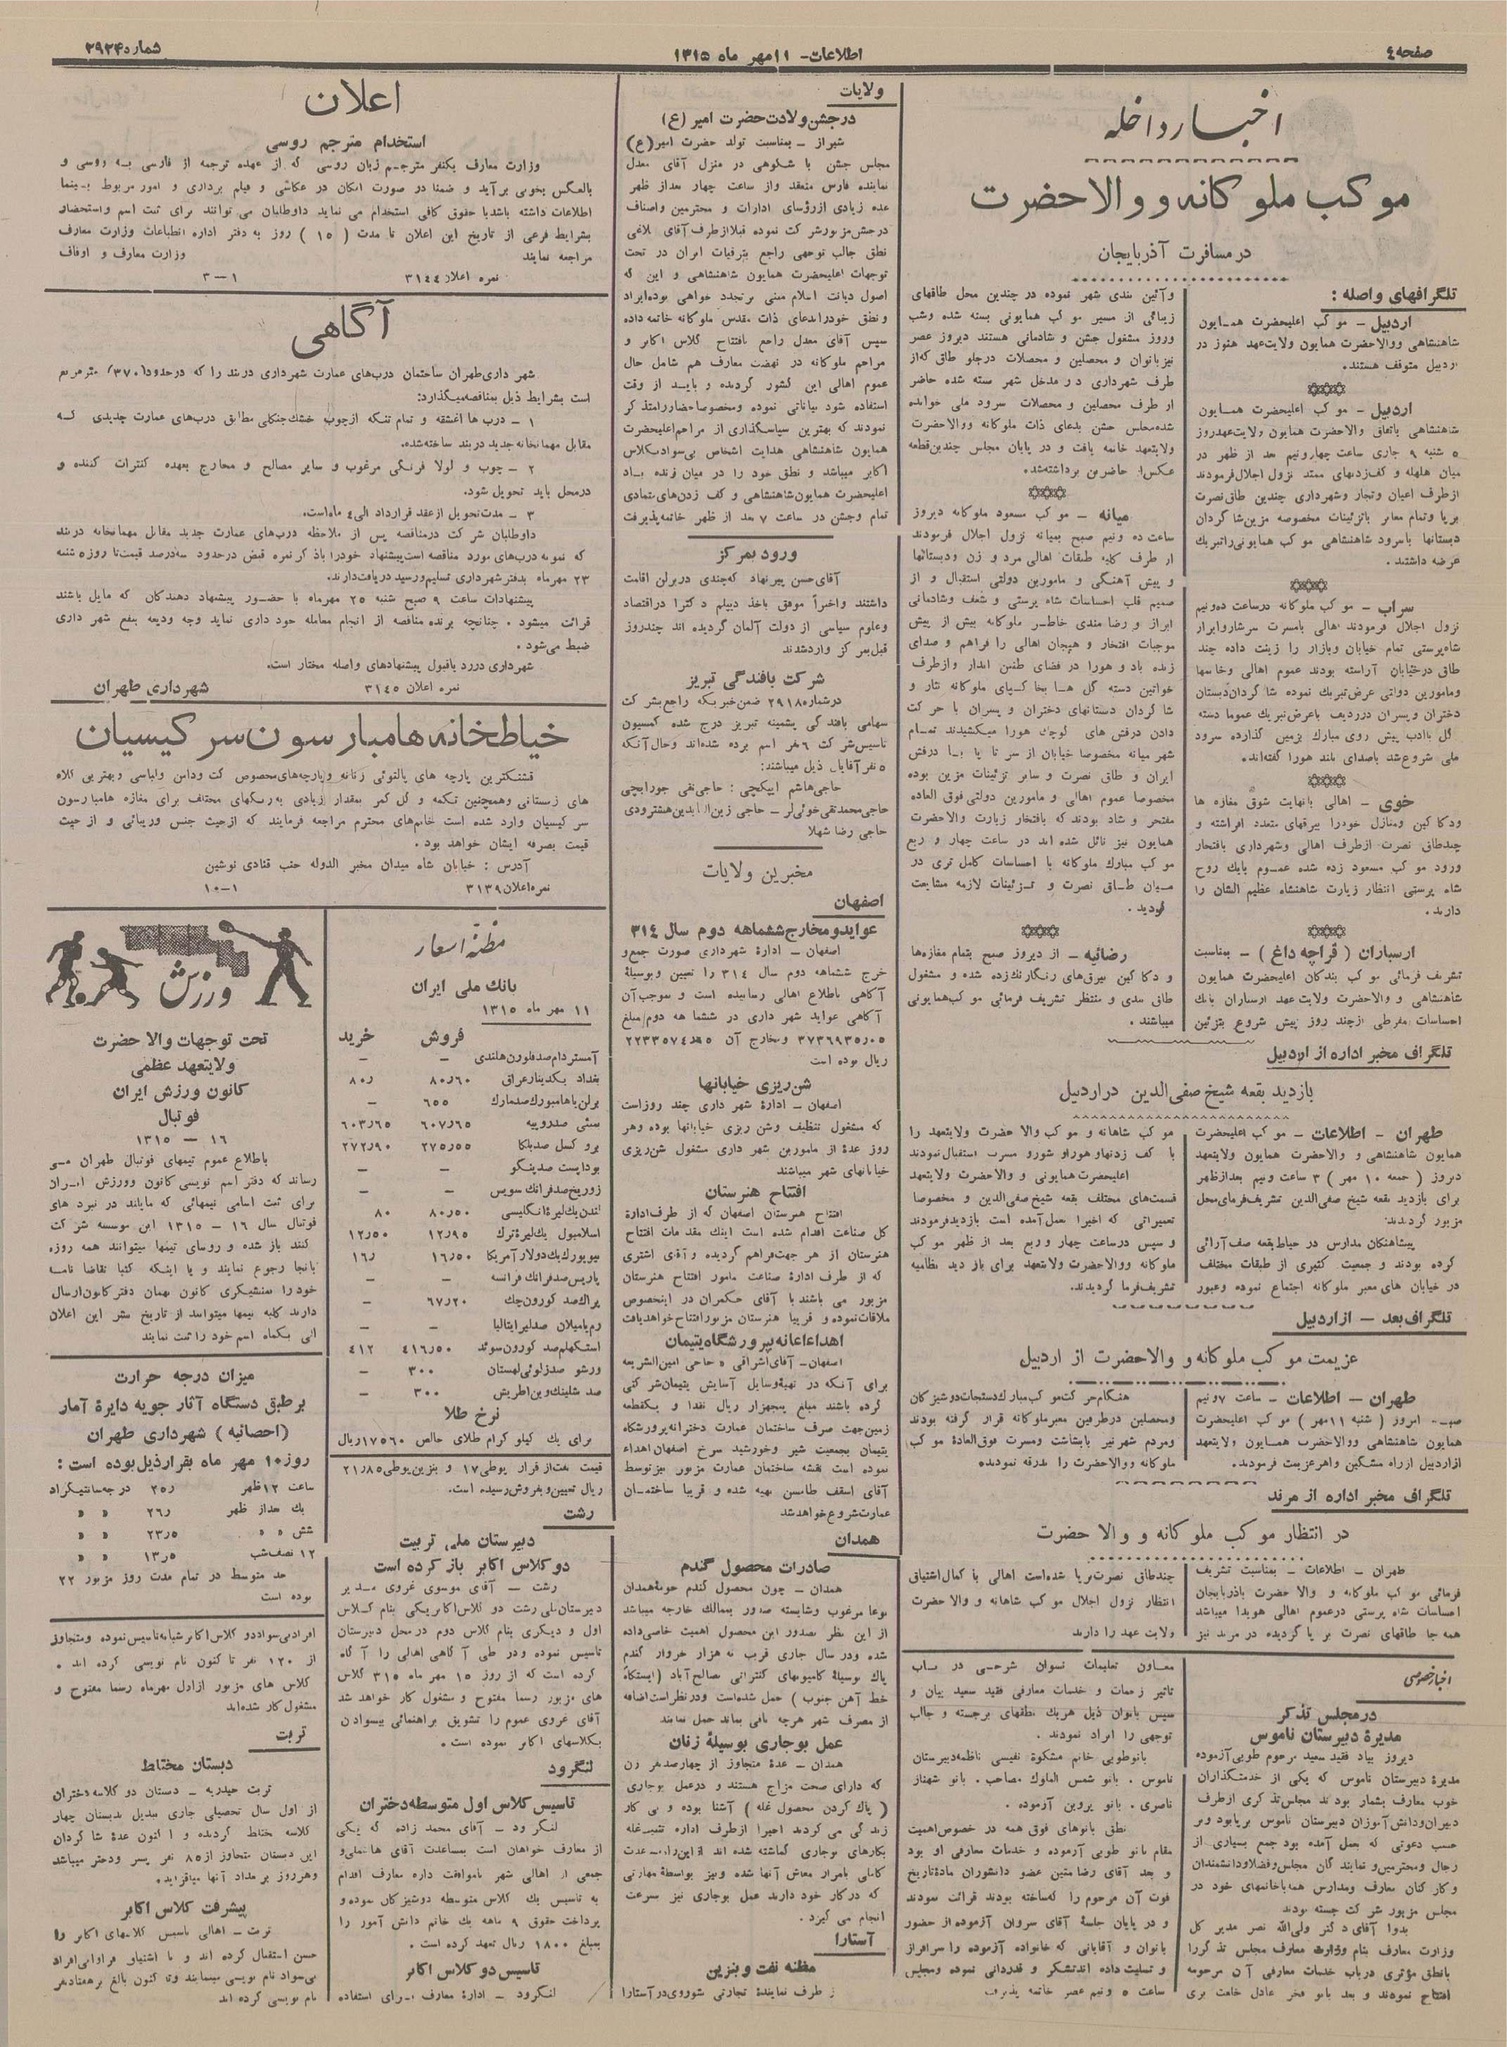 صفحه ٤
اطلاعات - ١١ مهر ماه ١٣١٥
شماره ٢٩٢٤
اخبار داخله
موکب ملوکانه و والاحضرت
در مسافرت آذربایجان
تلگرافهای واصله :
اردبیل - موکب اعلیحضرت همایون
شاهنشاهی و والاحضرت همایون ولایتعهد هنوز در
اردبیل متوقف هستند.
اردبیل - موکب اعلیحضرت همایون
شاهنشاهی باتفاق والاحضرت همایون ولایتعهد روز
٥ شنبه ٩ جاری ساعت چهار و نیم بعد از ظهر در
میان هلهله و کف زدنهای ممتد نزول اجلال فرمودند
از طرف اعیان و تجار و شهرداری چندین طاق نصرت
برپا و تمام معابر با تزئینات مخصوصه مزین شاگردان
دبستانها با سرود شاهنشاهی موکب همایونی را تبریک
عرضه داشتند.
سراب - موکب ملوکانه در ساعت ده و نیم
نزول اجلال فرمودند اهالی با مسرت سرشار و ابراز
شاه پرستی تمام خیابان و بازار را زینت داده چند
طاق در خیابان آراسته بودند عموم اهالی و خاصها
و مامورین دولتی عرض تبریک نموده شاگردان دبستان
دختران و پسران در ردیف با عرض تبریک عموما دسته
گل با ادب پیش روی مبارک بزمین گذارده سرود
ملی شروع شد با صدای بلند هورا گفته اند.
خوی - اهالی با نهایت شوق مغازه ها
و دکاکین و منازل خود را بیرقهای متعدد افراشته و
چند طاق نصرت از طرف اهالی و شهرداری با فتخار
ورود موکب مسعود زده شده عموم با یک روح
شاه پرستی انتظار زیارت شاهنشاه عظیم الشان را
دارند.
ارسباران ( قراچه داغ ) - بمناسبت
تشریف فرمائی موکب بندگان اعلیحضرت همایون
شاهنشاهی و والاحضرت ولایت عهد ارسباران با یک
احساسات مفرطی از چند روز پیش شروع بتزئین
و آئین بندی شهر نموده در چندین محل طاقهای
زیبائی از مسیر موکب همایونی بسته شده و شب
و روز مشغول جشن و شادمانی هستند دیروز عصر
نیز بانوان و محصلین و محصلات در جلو طاق که از
طرف شهرداری در مدخل شهر بسته شده حاضر
از طرف محصلین و محصلات سرود ملی خوانده
شده مجلس جشن بدعای ذات ملوکانه و والاحضرت
ولایتعهد خاتمه یافت و در پایان مجلس چندین قطعه
عکس از حاضرین برداشته شد.
میانه - موکب مسعود ملوکانه دیروز
ساعت ده و نیم صبح بمیانه نزول اجلال فرمودند
از طرف کلیه طبقات اهالی مرد و زن و دبستانها
و پیش آهنگی و مامورین دولتی استقبال و از
صمیم قلب احساسات شاه پرستی و شعف و شادمانی
ابراز و رضا مندی خاطر ملوکانه بیش از پیش
موجبات افتخار و هیجان اهالی را فراهم و صدای
زنده باد و هورا در فضای طنین انداز و از طرف
خواتین دسته گل ها بخاکپای ملوکانه نثار و
شاگردان دبستانهای دختران و پسران با حرکت
دادن درفش های کوچک هورا میکشیدند تمام
شهر میانه مخصوصا خیابان از سر تا پا با درفش
ایران و طاق نصرت و سایر تزئینات مزین بوده
مخصوصا عموم اهالی و مامورین دولتی فوق العاده
مفتخر و شاد بودند که بافتخار زیارت والاحضرت
همایون نیز نائل شده اند در ساعت چهار و ربع
موکب مبارک ملوکانه با احساسات کامل تری در
میان طاق نصرت و تزئینات لازمه مشایعت
گردید.
رضائیه - از دیروز صبح بتمام مغازه ها
و دکاکین بیرق های رنگارنگ زده شده و مشغول
طاق بندی و منتظر تشریف فرمائی موکب همایونی
میباشند.
تلگراف مخبر اداره از اردبیل
بازدید بقعه شیخ صفی الدین در اردبیل
طهران - اطلاعات - موکب اعلیحضرت
همایون شاهنشاهی و والاحضرت همایون ولایتعهد
دیروز ( جمعه ١٠ مهر ) ٣ ساعت و نیم بعد از ظهر
برای بازدید بقعه شیخ صفی الدین تشریف فرمای محل
مزبور گردیدند.
پیشاهنگان مدارس در حیاط بقعه صف آرائی
کرده بودند و جمعیت کثیری از طبقات مختلف
در خیابان های معبر ملوکانه اجتماع نموده و عبور
موکب شاهانه و موکب والا حضرت ولایتعهد را
با کف زدنها و هورا و شور و مسرت استقبال نمودند
اعلیحضرت همایونی و والاحضرت ولایتعهد
قسمت های مختلف بقعه شیخ صفی الدین و مخصوصا
تعمیراتی که اخیرا بعمل آمده است بازدید فرمودند
و سپس در ساعت چهار و ربع بعد از ظهر موکب
ملوکانه و والاحضرت ولایتعهد برای بازدید نظامیه
تشریف فرما گردیدند.
تلگراف بعد - از اردبیل
عزیمت موکب ملوکانه و والاحضرت از اردبیل
طهران - اطلاعات - ساعت ٧ و نیم
صبح امروز ( شنبه ١١ مهر ) موکب اعلیحضرت
همایون شاهنشاهی و والاحضرت همایون ولایتعهد
از اردبیل از راه مشکین و اهر عزیمت فرمودند.
هنگام حرکت موکب مبارک دستجات دوشیزگان
و محصلین در طرفین معبر ملوکانه قرار گرفته بودند
و مردم شهر نیز با بشاشت و مسرت فوق العاده موکب
ملوکانه و والاحضرت را بدرقه نمودند.
تلگراف مخبر اداره از مرند
در انتظار موکب ملوکانه و والا حضرت
طهران - اطلاعات - بمناسبت تشریف
فرمائی موکب ملوکانه و والا حضرت بآذربایجان
احساسات شاه پرستی در عموم اهالی هویدا میباشد
همه جا طاقهای نصرت برپا گردیده در مرند نیز
چند طاق نصرت برپا شده است اهالی با کمال اشتیاق
انتظار نزول اجلال موکب شاهانه و والا حضرت
ولایت عهد را دارند
اخبار خصوصی
در مجلس تذکر
مدیرۀ دبیرستان ناموس
دیروز بیاد فقید سعید مرحوم طوبی آزموده
مدیرۀ دبیرستان ناموس که یکی از خدمتگذاران
خوب معارف بشمار بودند مجلس تذکری از طرف
دبیران و دانش آموزان دبیرستان ناموس برپا بود و بر
حسب دعوتی که بعمل آمده بود جمع بسیاری از
رجال و محترمین و نمایندگان مجلس و فضلا و دانشمندان
و کارکنان معارف و مدارس همه با خانمهای خود در
مجلس مزبور شرکت جسته بودند
بدوا آقای دکتر ولی الله نصر مدیر کل
وزارت معارف بنام وزارت معارف مجلس تذکر را
با نطق مؤثری در باب خدمات معارفی آن مرحومه
افتتاح نمودند و بعد بانو فخر عادل خلعت بری
معاون تعلیمات نسوان شرحی در باب
تاثیر زحمات و خدمات معارفی فقید سعید بیان و
سپس بانوان ذیل هر یک نطقهای برجسته و جالب
توجهی را ایراد نمودند.
بانو طوبی خانم مشکوة نفیسی ناظمه دبیرستان
ناموس . بانو شمس الملوک مصاحب . بانو شهناز
ناصری . بانو پروین آزموده .
نطق بانوهای فوق همه در خصوص اهمیت
مقام بانو طوبی آزموده و خدمات معارفی او بود
و بعد آقای رضا متین عضو دانشوران مادۀ تاریخ
فوت آن مرحوم را که ساخته بودند قرائت نمودند
و در پایان جلسه آقای سروان آزموده از حضور
بانوان و آقایانی که خانواده آزموده را سرافراز
و تسلیت داده اند تشکر و قدردانی نموده و مجلس
ساعت ٥ و نیم عصر خاتمه پذیرفت
ولایات
در جشن ولادت حضرت امیر (ع)
شیراز - بمناسبت تولد حضرت امیر (ع)
مجلس جشن با شکوهی در منزل آقای معدل
نماینده فارس منعقد و از ساعت چهار بعد از ظهر
عده زیادی از رؤسای ادارات و محترمین و اصناف
در جشن مزبور شرکت نموده قبلا از طرف آقای بلاغی
نطق جالب توجهی راجع بترقیات ایران در تحت
توجهات اعلیحضرت همایون شاهنشاهی و این که
اصول دیانت اسلام مبنی بر تجدد خواهی بوده ایراد
و نطق خود را بدعای ذات مقدس ملوکانه خاتمه داده
سپس آقای معدل راجع بافتتاح کلاس اکابر و
مراحم ملوکانه در نهضت معارف هم شامل حال
عموم اهالی این کشور گردیده و باید از وقت
استفاده شود بیاناتی نموده و مخصوصا حضار را متذکر
نمودند که بهترین سپاسگذاری از مراحم اعلیحضرت
همایون شاهنشاهی هدایت اشخاص بی سواد بکلاس
اکابر میباشد و نطق خود را در میان زنده باد
اعلیحضرت همایون شاهنشاهی و کف زدن های متمادی
تمام و جشن در ساعت ٧ بعد از ظهر خاتمه پذیرفت
ورود بمرکز
آقای حسن پیرنهاد که چندی در برلن اقامت
داشتند و اخیراً موفق باخذ دیپلم دکترا در اقتصاد
و علوم سیاسی از دولت آلمان گردیده اند چند روز
قبل بمرکز وارد شدند
شرکت بافندگی تبریز
در شماره ٢٩١٨ ضمن خبریکه راجع بشرکت
سهامی بافندگی پشمینه تبریز درج شده کمسیون
تاسیس شرکت ٦ نفر اسم برده شده اند و حال آنکه
٥ نفر آقایان ذیل میباشند:
حاجی هاشم ایپکچی : حاجی تقی جورابچی
حاجی محمد تقی خوئی لر - حاجی زین العابدین هشترودی
حاجی رضا شهلا
مخبرین ولایات
اصفهان
عواید و مخارج ششماهه دوم سال ٣١٤
اصفهان - ادارۀ شهرداری صورت جمع و
خرج ششماهه دوم سال ٣١٤ را تعیین و بوسیلۀ
آگاهی باطلاع اهالی رسانیده است و بموجب آن
آگاهی عواید شهر داری در ششما هه دوم مبلغ
ریال بوده است
شن ریزی خیابانها
اصفهان - ادارۀ شهر داری چند روز است
که مشغول تنظیف و شن ریزی خیابانها بوده و هر
روز عدۀ از مامورین شهر داری مشغول شن ریزی
خیابانهای شهر میباشند
افتتاح هنرستان
افتتاح هنرستان اصفهان که از طرف ادارۀ
کل صناعت اقدام شده است اینک مقدمات افتتاح
هنرستان از هر جهت فراهم گردیده و آقای اشتری
که از طرف ادارۀ صناعت مامور افتتاح هنرستان
مزبور می باشند با آقای حکمران در اینخصوص
ملاقات نموده و قریبا هنرستان مزبور افتتاح خواهد یافت
اهداء اعانه بپرورشگاه یتیمان
اصفهان - آقای اشراقی و حاجی امین الشریعه
برای آنکه در تهیۀ وسایل آسایش یتیمان شرکتی
کرده باشند مبلغ پنجهزار ریال نقدا و یکقطعه
زمین جهت صرف ساختمان عمارت دخترانه پرورشگاه
یتیمان بجمعیت شیر و خورشید سرخ اصفهان اهداء
نموده است نقشه ساختمان عمارت مزبور نیز توسط
آقای اسقف طامسن تهیه شده و قریبا ساختمان
عمارت شروع خواهد شد
همدان
صادرات محصول گندم
همدان - چون محصول گندم حومۀ همدان
نوعا مرغوب و شایسته صدور بممالک خارجه میباشد
از این نظر بصدور این محصول اهمیت خاصی داده
شده و در سال جاری قریب نه هزار خروار گندم
پاک بوسیلۀ کامیونهای کنتراتی بصالح آباد (ایستگاه
خط آهن جنوب ) حمل شده است و در نظر است اضافه
از مصرف شهر هر چه باقی بماند حمل نمایند
عمل بوجاری بوسیلۀ زنان
همدان - عدۀ متجاوز از چهارصد نفر زن
که دارای صحت مزاج هستند و در عمل بوجاری
( پاک کردن محصول غله ) آشنا بوده و بی کار
زندگی می کردند اخیرا از طرف اداره تثبیت غله
بکارهای بوجاری گماشته شده اند از این راه مساعدت
کاملی بامرار معاش آنها شده و نیز بواسطۀ مهارتی
که در کار خود دارند عمل بوجاری نیز بسرعت
انجام می گیرد.
آستارا
مظنه نفت و بنزین
از طرف نمایندۀ تجارتی شوروی در آستارا
قیمت نفت از قرار پوطی ١٧ و بنزین پوطی ٢١/٨٥
ریال تعیین و بفروش رسیده است.
رشت
دبیرستان ملی تربیت
دو کلاس اکابر باز کرده است
رشت - آقای موسوی غروی مدیر
دبیرستان ملی رشت دو کلاس اکابر یکی بنام کلاس
اول و دیگری بنام کلاس دوم در محل دبیرستان
تاسیس نموده و در طی آگاهی اهالی را آگاه
کرده است که از روز ١٥ مهر ماه ٣١٥ کلاس
های مزبور رسما مفتوح و مشغول کار خواهد شد
آقای غروی عموم را تشویق براهنمائی بیسوادن
بکلاسهای اکابر نموده است.
لنگرود
تاسیس کلاس اول متوسطه دختران
لنگرود - آقای محمد زاده که یکی
از معارف خواهان است بمساعدت آقای هاتفی و
جمعی از اهالی شهر با موافقت داره معارف اقدام
به تاسیس یک کلاس متوسطه دوشیزگان نموده و
پرداخت حقوق ٩ ماهه یک خانم دانش آموز را
بمبلغ ١٨٠٠ ریال تعهد کرده است.
تاسیس دو کلاس اکابر
لنگرود - ادارۀ معارف برای استفاده
افراد بی سواد دو کلاس اکابر شبانه تاسیس نموده و متجاوز
از ١٢٠ نفر تا کنون نام نویسی کرده اند.
کلاس های مزبور از اول مهر ماه رسما مفتوح و
مشغول کار شده اند
تربت
دبستان مختلط
تربت حیدریه - دبستان دو کلاسه دختران
از اول سال تحصیلی جاری تبدیل بدبستان چهار
کلاسه مختلط گردیده و اکنون عدۀ شاگردان
این دبستان متجاوز از ٨٥ نفر پسر و دختر میباشد
و هر روز بر تعداد آنها میافزاید.
پیشرفت کلاس اکابر
تربت - اهالی تاسیس کلاسهای اکابر را
حسن استقبال کرده اند و با اشتیاق فراوانی افراد
بی سواد نام نویسی مینمایند و تا کنون بالغ بر هفتاد نفر
نام نویسی کرده اند
اعلان
استخدام مترجم روسی
وزارت معارف یکنفر مترجم زبان روسی که از عهده ترجمه از فارسی به روسی و
بالعکس بخوبی برآید و ضمنا در صورت امکان در عکاسی و فیلم برداری و امور مربوط بسینما
اطلاعات داشته باشد با حقوق کافی استخدام می نماید داوطلبان می توانند برای ثبت اسم و استحضار
بشرایط فرعی از تاریخ این اعلان تا مدت ( ١٥ ) روز به دفتر اداره انطباعات وزارت معارف
مراجعه نمایند
وزارت معارف و اوقاف
نمره اعلان ٣١٤٤
١-٣
آگاهی
شهر داری طهران ساختمان درب های عمارت شهرداری دربند را که در حدود (٣٧٠) متر مربع
است بشرایط ذیل بمناقصه میگذارد:
١ - درب ها اغشقه و تمام تنکه از چوب خشک جنگلی مطابق درب های عمارت جدیدی که
مقابل مهمانخانه جدید دربند ساخته شده.
٢ - چوب و لولا فرنگی مرغوب و سایر مصالح و مخارج بعهده کنترات کننده و
در محل باید تحویل شود.
٣ - مدت تحویل از عقد قرارداد الی ٤ ماه است.
داوطلبان شرکت در مناقصه پس از ملاحظه درب های عمارت جدید مقابل مهمانخانه دربند
که نمونه درب های مورد مناقصه است پیشنهاد خود را با ذکر نمره قبض در حدود سه درصد قیمت تا روز ٥ شنبه
٢٣ مهر ماه بدفتر شهرداری تسلیم و رسید دریافت دارند.
پیشنهادات ساعت ٩ صبح شنبه ٢٥ مهر ماه با حضور پیشنهاد دهندگان که مایل باشند
قرائت میشود . چنانچه برنده مناقصه از انجام معامله خود داری نماید وجه ودیعه بنفع شهر داری
ضبط می شود .
شهرداری در رد یا قبول پیشنهادهای واصله مختار است.
نمره اعلان ٣١٤٥
شهرداری طهران
خیاطخانه هامبارسون سرکیسیان
قشنگترین پارچه های پالتوئی زنانه و پارچه های مخصوص کت و دامن و لباسی و بهترین کلاه
های زمستانی و همچنین تکمه و گل کمر بمقدار زیادی به رنگهای مختلف برای مغازه هامبارسون
سرکیسیان وارد شده است خانم های محترم مراجعه فرمایند که از حیث جنس و زیبائی و از حیث
قیمت بصرفه ایشان خواهد بود .
آدرس : خیابان شاه میدان مخبر الدوله جنب قنادی نوشین
نمره اعلان ٣١٣٩
١-١٠
مظنۀ اسعار
بانک ملی ایران
١١ مهر ماه ١٣١٥
فروش خرید
آمستردام صد فلورن هلندی - -
بغداد یکدینار عراق ٨٠/٦٠ ٨٠/
برلن یا هامبورک صد مارک ٦٥٥ -
بمبئی صد روپیه ٦٠٧/٦٥ ٦٠٣/٦٥
بروکسل صد بلکا ٢٧٥/٥٥ ٢٧٢/٩٠
بوداپست صد پنگو - -
زوریخ صد فرانک سویس - -
لندن یک لیرۀ انگلیسی ٨٠/٥٠ ٨٠
اسلامبول یک لیرۀ ترک ١٢/٩٥ ١٢/٥٠
نیویورک یک دولار آمریکا ١٦/٥٠ ١٦/
پاریس صد فرانک فرانسه - -
پراک صد کورون چک ٦٧/٢٠ -
رم یا میلان صد لیر ایتالیا - -
استکهلم صد کورون سوئد ٤١٦/٥٠ ٤١٢
ورشو صد زلوئی لهستان ٣٠٠ -
صد شلینک وین اطریش ٣٠٠ -
نرخ طلا
برای یک کیلو گرام طلای خالص ١٧٥٦٠ ریال
ورزش
تحت توجهات والاحضرت
ولایتعهد عظمی
کانون ورزش ایران
فوتبال
١٦ - ١٣١٥
باطلاع عموم تیمهای فوتبال طهران می
رساند که دفتر اسم نویسی کانون ورزش ایران
برای ثبت اسامی تیمهائی که مایلند در نبرد های
فوتبال سال ١٦ - ١٣١٥ این موسسه شرکت
کنند باز شده و روسای تیمها میتوانند همه روزه
بانجا رجوع نمایند و یا اینکه کتبا تقاضا نامه
خود را بمنشیگری کانون بهمان دفتر کانون ارسال
دارند کلیه تیمها میتوانند از تاریخ نشر این اعلان
الی یکماه اسم خود را ثبت نمایند
میزان درجه حرارت
بر طبق دستگاه آثار جویه دایرۀ آمار
(احصائیه ) شهرداری طهران
روز ١٠ مهر ماه بقرار ذیل بوده است :
ساعت ١٢ ظهر ٢٥/ درجه سانتیگراد
یک بعد از ظهر ٢٦/ « «
شش « « ٢٣/٥ « «
١٢ نصف شب ١٣/٥ « «
حد متوسط در تمام مدت روز مزبور ٢٢
بوده است